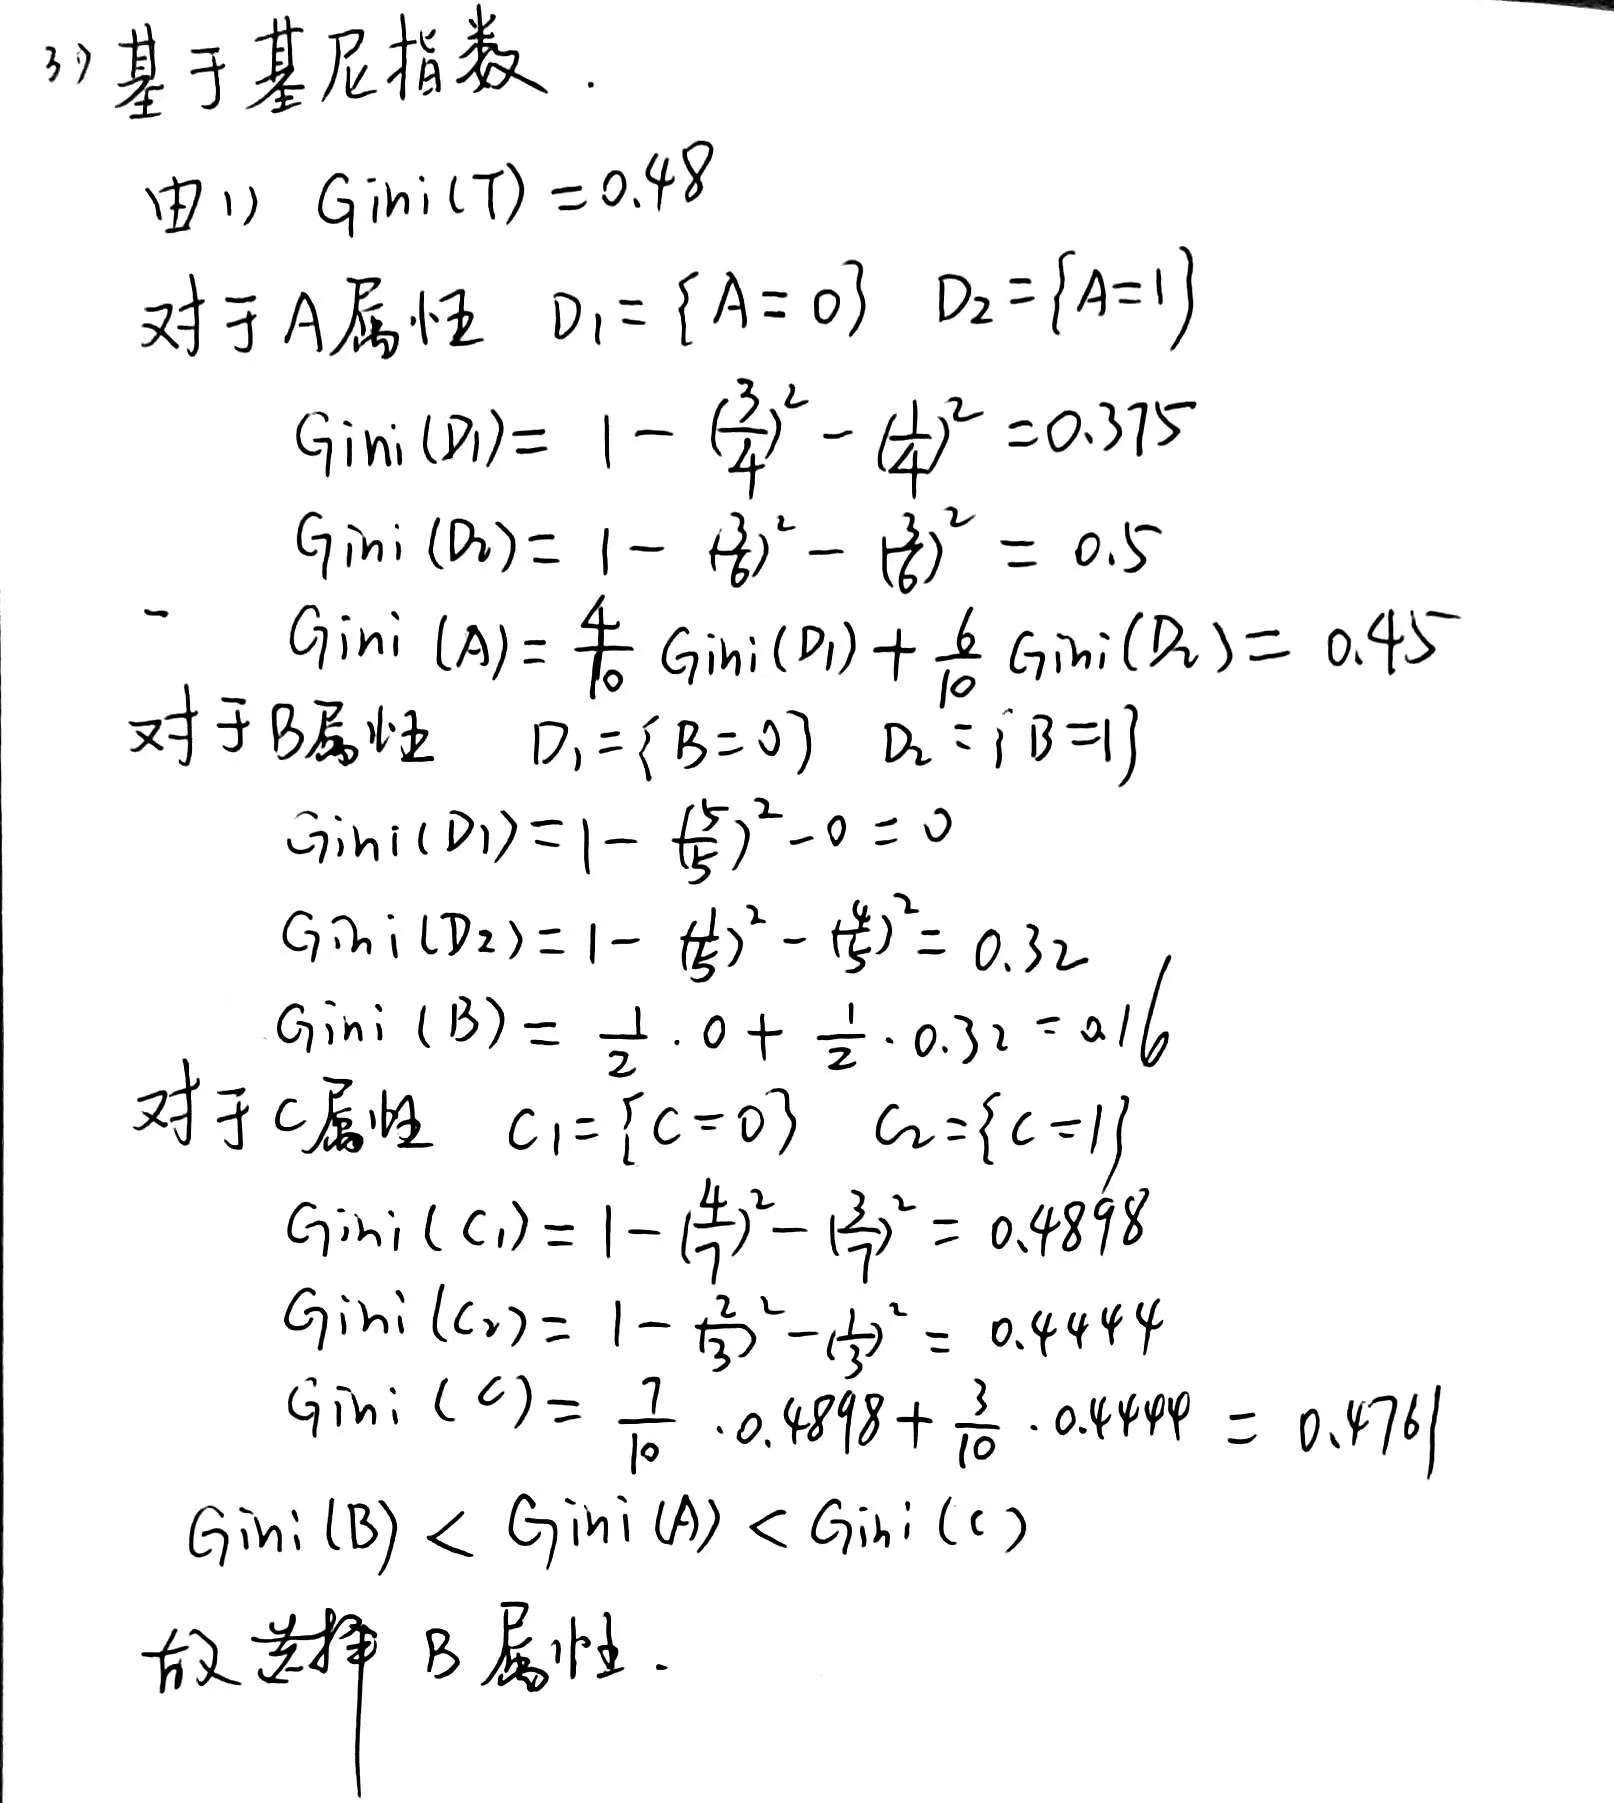 3) 基于基尼指数.
由1) Gini(T) = 0.48
对于A属性 D₁ = {A = 0} D₂ = {A = 1}
Gini(D₁) = 1 - (3/4)² - (1/4)² = 0.375
Gini(D₂) = 1 - (3/6)² - (3/6)² = 0.5
Gini(A) = 4/10 Gini(D₁) + 6/10 Gini(D₂) = 0.45
对于B属性 D₁ = {B = 0} D₂ = {B = 1}
Gini(D₁) = 1 - (5/5)² - 0 = 0
Gini(D₂) = 1 - (1/5)² - (4/5)² = 0.32
Gini(B) = 1/2 · 0 + 1/2 · 0.32 = 0.16
对于C属性 C₁ = {C = 0} C₂ = {C = 1}
Gini(C₁) = 1 - (4/7)² - (3/7)² = 0.4898
Gini(C₂) = 1 - (2/3)² - (1/3)² = 0.4444
Gini(C) = 7/10 · 0.4898 + 3/10 · 0.4444 = 0.4761
Gini(B) < Gini(A) < Gini(C)
故选择 B 属性.